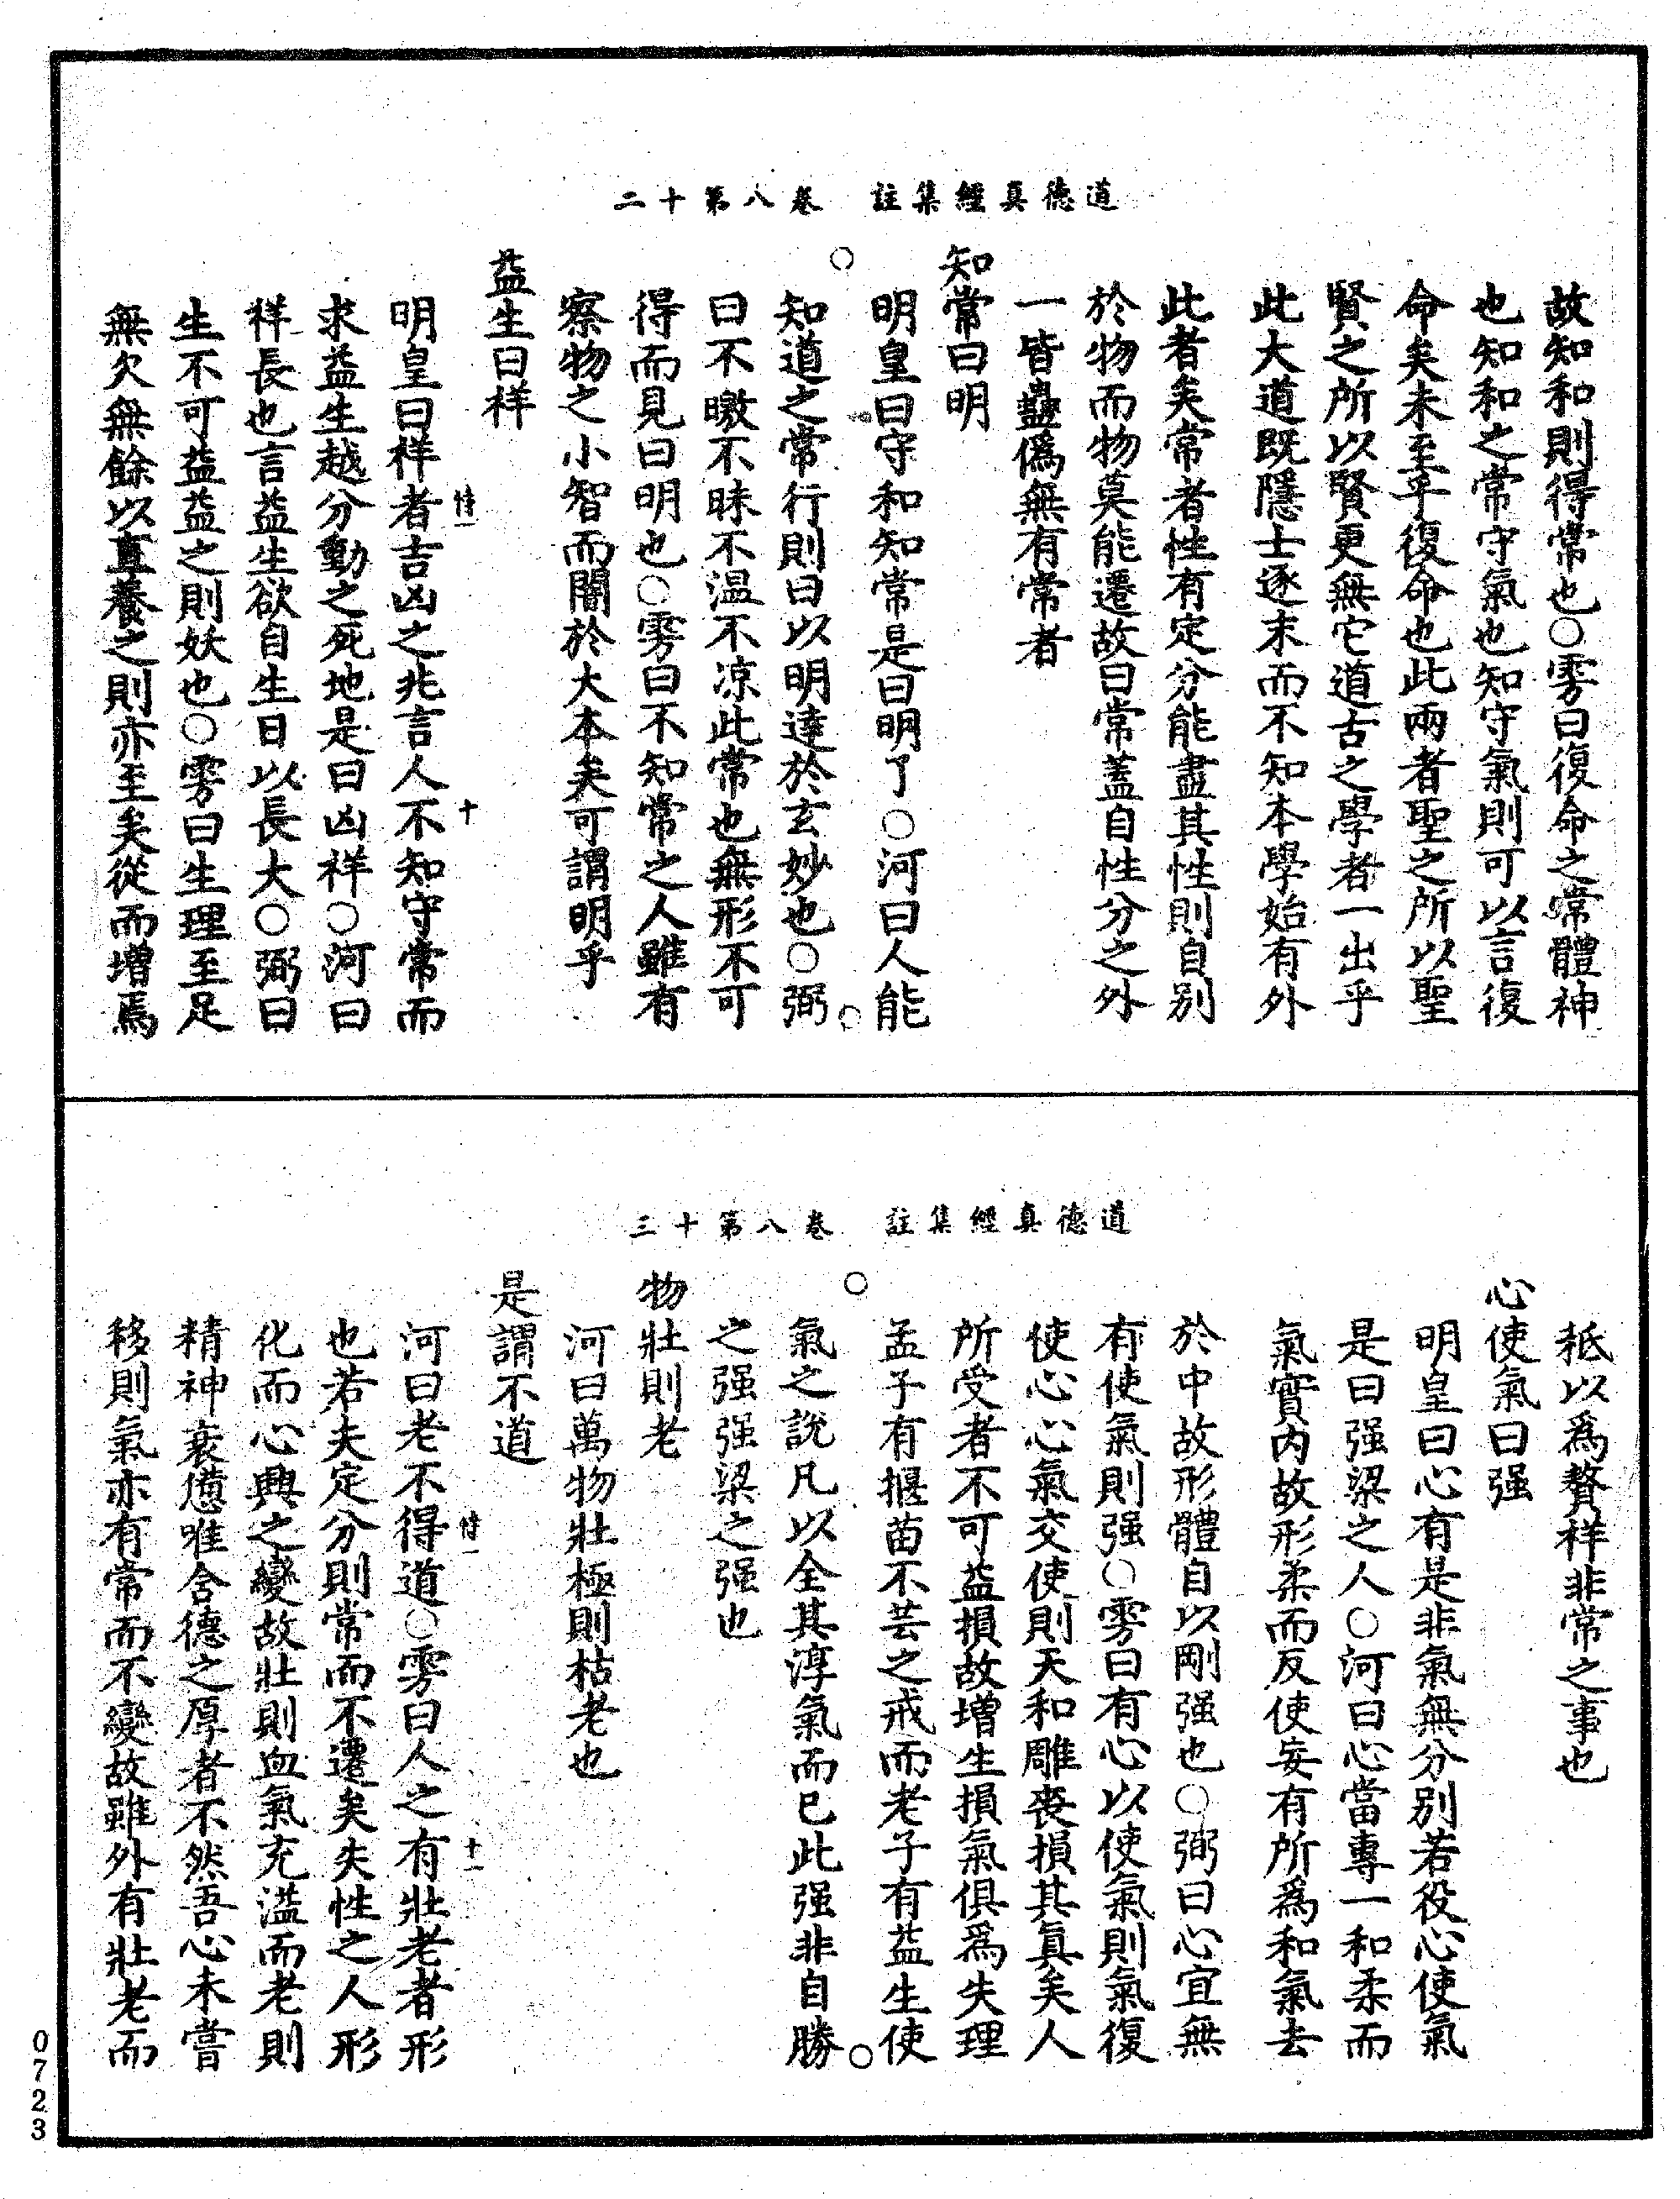 道德真經集註　卷八第十二
故知和則得常也○雱曰復命之常體神
也知和之常守氣也知守氣則可以言復
命矣未至乎復命也此兩者聖之所以聖
賢之所以賢更無它道古之學者一出乎
此大道既隱士逐末而不知本學始有外
此者矣常者性有定分能盡其性則自别
於物而物莫能遷故曰常蓋自性分之外
一皆蠱僞無有常者
知常曰明
明皇曰守和知常是曰明了○河曰人能
知道之常行則曰以明達於玄妙也○弼
曰不曒不昧不温不凉此常也無形不可
得而見曰明也○雱曰不知常之人雖有
察物之小智而闇於大本矣可謂明乎
益生曰祥
明皇曰祥者吉凶之兆言人不知守常而
求益生越分動之死地是曰凶祥○河曰
祥長也言益生欲自生日以長大○弼曰
生不可益益之則妖也○雱曰生理至足
無欠無餘以直養之則亦至矣從而增焉
恃一
十
道德真經集註　卷八第十三
秖以爲贅祥非常之事也
心使氣曰强
明皇曰心有是非氣無分别若役心使氣
是曰强梁之人○河曰心當專一和柔而
氣實内故形柔而反使妄有所爲和氣去
於中故形體自以剛强也○弼曰心宜無
有使氣則强○雱曰有心以使氣則氣復
使心心氣交使則天和雕喪損其眞矣人
所受者不可益損故增生損氣俱爲失理
孟子有揠苗不芸之戒而老子有益生使
氣之說凡以全其淳氣而已此强非自勝
之强强梁之强也
物壯則老
河曰萬物壯極則枯老也
是謂不道
河曰老不得道○雱曰人之有壯老者形
也若夫定分則常而不遷矣失性之人形
化而心興之變故壯則血氣充溢而老則
精神衰憊唯含德之厚者不然吾心未嘗
移則氣亦有常而不變故雖外有壯老而
恃一
十一
0723